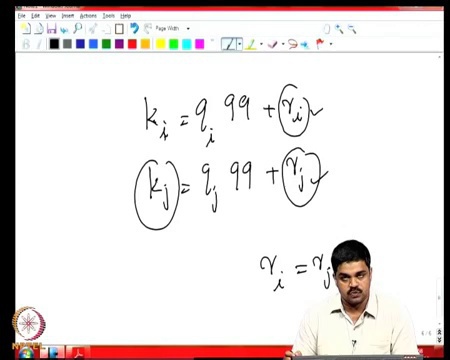 File Edit View Insert Actions Tools Help
Page Width
k_i = q_i 99 + r_i
k_j = q_j 99 + r_j
r_i = r_j